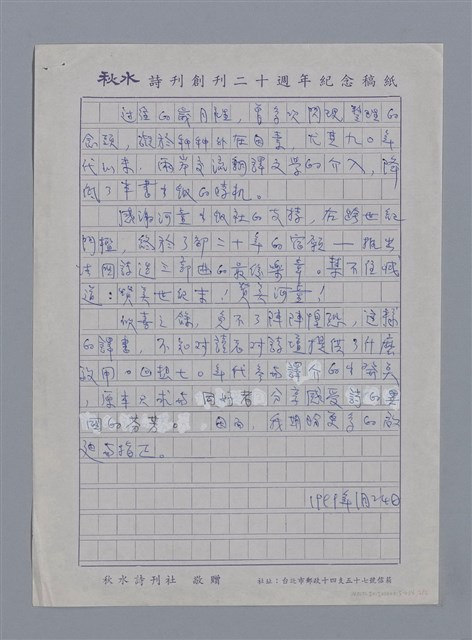 秋水 詩刊創刊二十週年紀念稿紙
過往的歲月裡，曾多次閃現整理的
念頭，礙於種種外在因素，尤其九〇年
代以來，兩岸交流翻譯文學的介入，降
低了筆書出版的時机。
感謝河童出版社的支持，在跨世紀
門檻，終於了卻二十年的宿願——推出
法國詩選三部曲的最後樂章。禁不住喊
道：贊美世紀末！贊美河童！
欣喜之餘，免不了陣陣惶恐，這樣
的譯書，不知對讀者對詩壇提供了什麼
效用。回想七〇年代本為譯介的出發點
，原本只求與同好者分享感受詩的異
國的芬芳。因而，我期盼更多的啟
迪與指正。
1999年1月24日
秋水詩刊社 敬贈 社址：台北市郵政十四支五十七號信箱